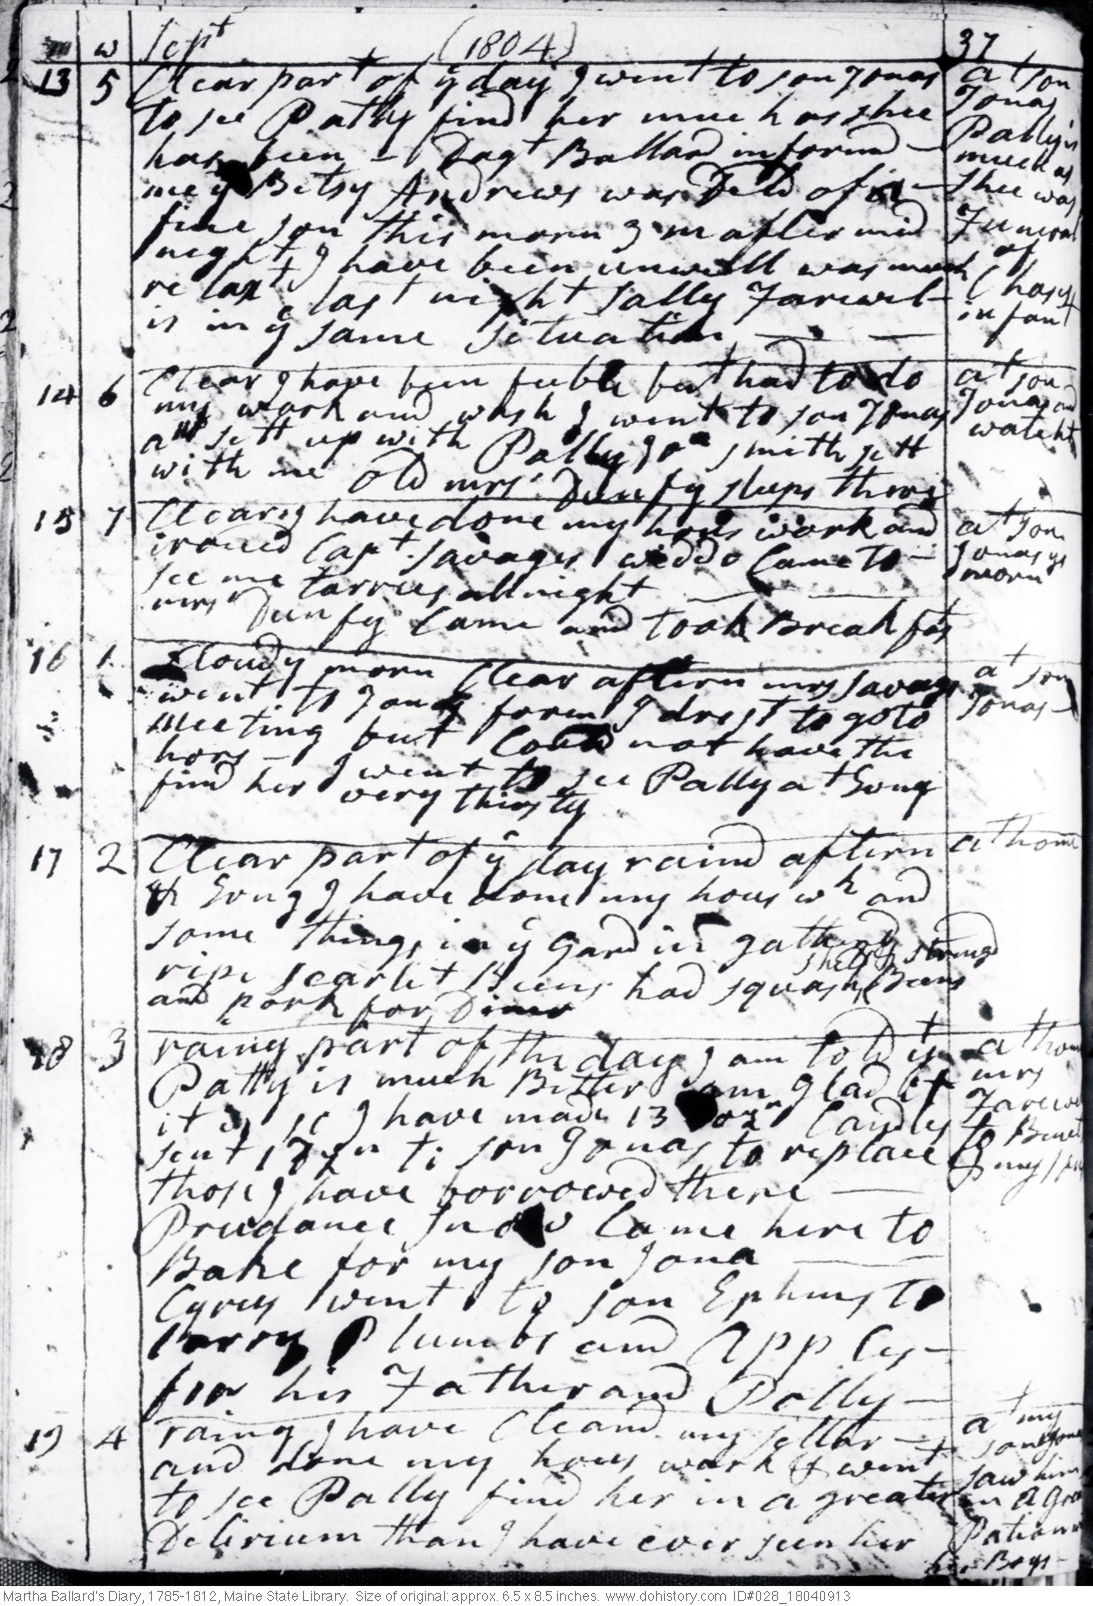 m w Sept (1804) 37
13 5 Clear part of ÿ day I went to son Jonas
to see Patty find her much as shee
has been – Dagt Ballard informd –
me ÿ Betsy Andrews was Deld of a –
fine son this morn 3 m after mid
night, I have been unwell was much
relaxt last night Sally Farewel –
is in ÿ same situation — — —
at son
Jonas
Patty is
much as
shee was
Funeral
of
Chases
infant
14 6 Clear I have been feeble but had to do
my work and wash I went to son Jonas
and sett up with Patty Jos smith sett
with me old mrs Dunfy sleeps there
at son
Jonas and
watcht
15 7 Clear, I have done my hous work and
ironed Capt. Savages widdo Came to –
see me tarries all night
mrs Dunfy Came and took Breakfas
at son
Jonas ys
morn
16 1 Cloudy morn Clear aftern mrs Savage
went to Jonas foren I drest to go to
Meeting but Could not have the
hors – I went to see Patty at Evng
find her very thirsty
at son
Jonas –
17 2 Clear part of ÿ day raind aftern
& Evng I have done my hous wk and
some things in ÿ Gardin gatherd
ripe scarlet Beens had squash Beens
shelld & strung
and pork for Diner
at home
18 3 rainy part of the day I am told ÿ
Patty is much Better am glad if
it is so I have made 13 dozn Candles
sent 1 dzn to son Jonas to replace
those I have borrowed there —
Prudance Snow Came here to
Bake for my son Jona
Cyrus went to son Ephms to
Carry Plumbs and Apples –
for his Father and Polly –
at home
mrs
Farewel
to
my
19 4 rainy I have Cleand my sellar –
and done my hous work & went
to see Patty find her in a greater
Delirium than I have ever seen her
at my
son Jonas
saw him
in a gret
Pation
Boys –
Martha Ballard's Diary, 1785-1812, Maine State Library. Size of original: approx. 6.5 x 8.5 inches. www.dohistory.com ID#028_18040913